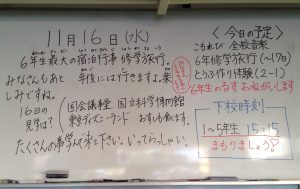 11月16日(水)
6年生最大の宿泊行事 修学旅行。
みなさんもあと 年後には行きますよ。楽
しみですね。
16日の
見学は?
国会議事堂、国立科学博物館
東京ディズニーランド おすしも食ます。
たくさんの事学んで来て下さい。いってらっしゃい。
<今日の予定>
こもれび 全校音楽
6年修学旅行(〜17日)
とうふ作り体験(2-1)
6年生のるす おねがいします
下校時刻
1〜5年生 15:15
まもりましょう!